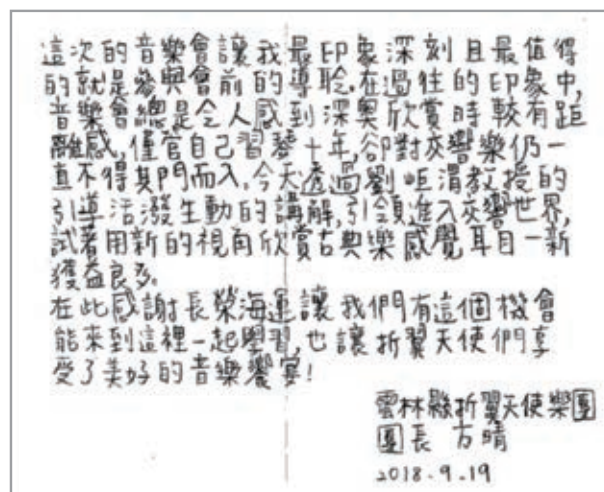 這次的音樂會讓我最印象深刻且最值得
的就是參與會前的導聆.在過往的印象中,
音樂會總是令人感到深奧欣賞時較有距
離感,僅管自己習琴十年,卻對交響樂仍一
直不得其門而入.今天透過劉岠渭教授的
引導活潑生動的講解,引領進入交響世界,
試著用新的視角欣賞古典樂感覺耳目一新
獲益良多。
在此感謝長榮海運讓我們有這個機會
能來到這裡一起學習,也讓折翼天使們享
受了美好的音樂饗宴!
雲林縣折翼天使樂團
團長 方晴
2018.9.19